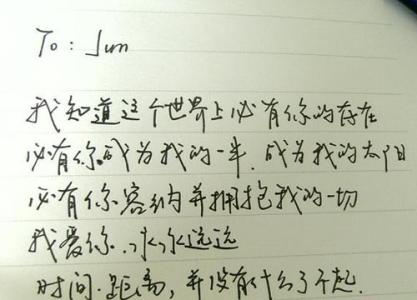 To: Jun
我知道这个世界上必有你的存在
必有你成为我的一半.成为我的太阳
必有你容纳并拥抱我的一切
我爱你.永永远远
时间.距离,并没有什么了不起.